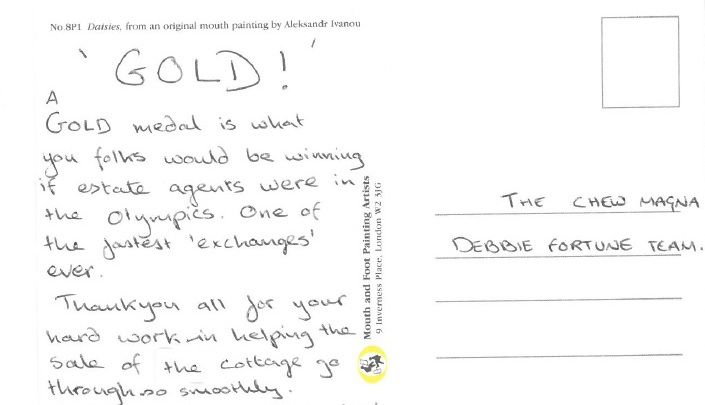 No.8P1 Daisies, from an original mouth painting by Aleksandr Ivanou
'GOLD!'
A
GOLD medal is what
you folks would be winning
if estate agents were in
the Olympics. One of
the fastest 'exchanges'
ever.
Thankyou all for your
hard work in helping the
sale of the cottage go
through so smoothly.
Mouth and Foot Painting Artists
9 Inverness Place, London W2 3JG
THE CHEW MAGNA
DEBBIE FORTUNE TEAM.